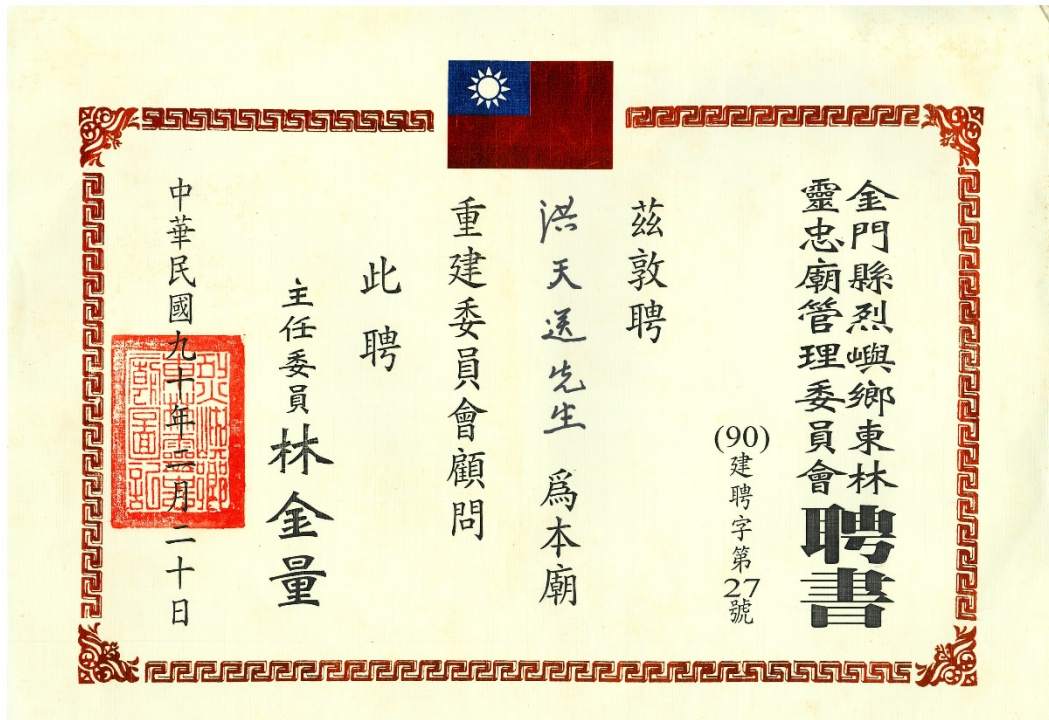 金門縣烈嶼鄉東林
靈忠廟管理委員會
聘書
(90)建聘字第27號
茲敦聘
洪天送先生 爲本廟
重建委員會顧問
此聘
主任委員 林金量
中華民國九十年二月二十日
烈嶼鄉
廟圖記